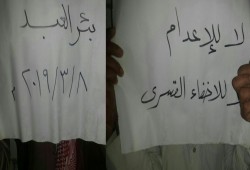 لا للإعدام
لا للاخفاء القسرى
بئر العبد
٢٠١٩/٣/٨